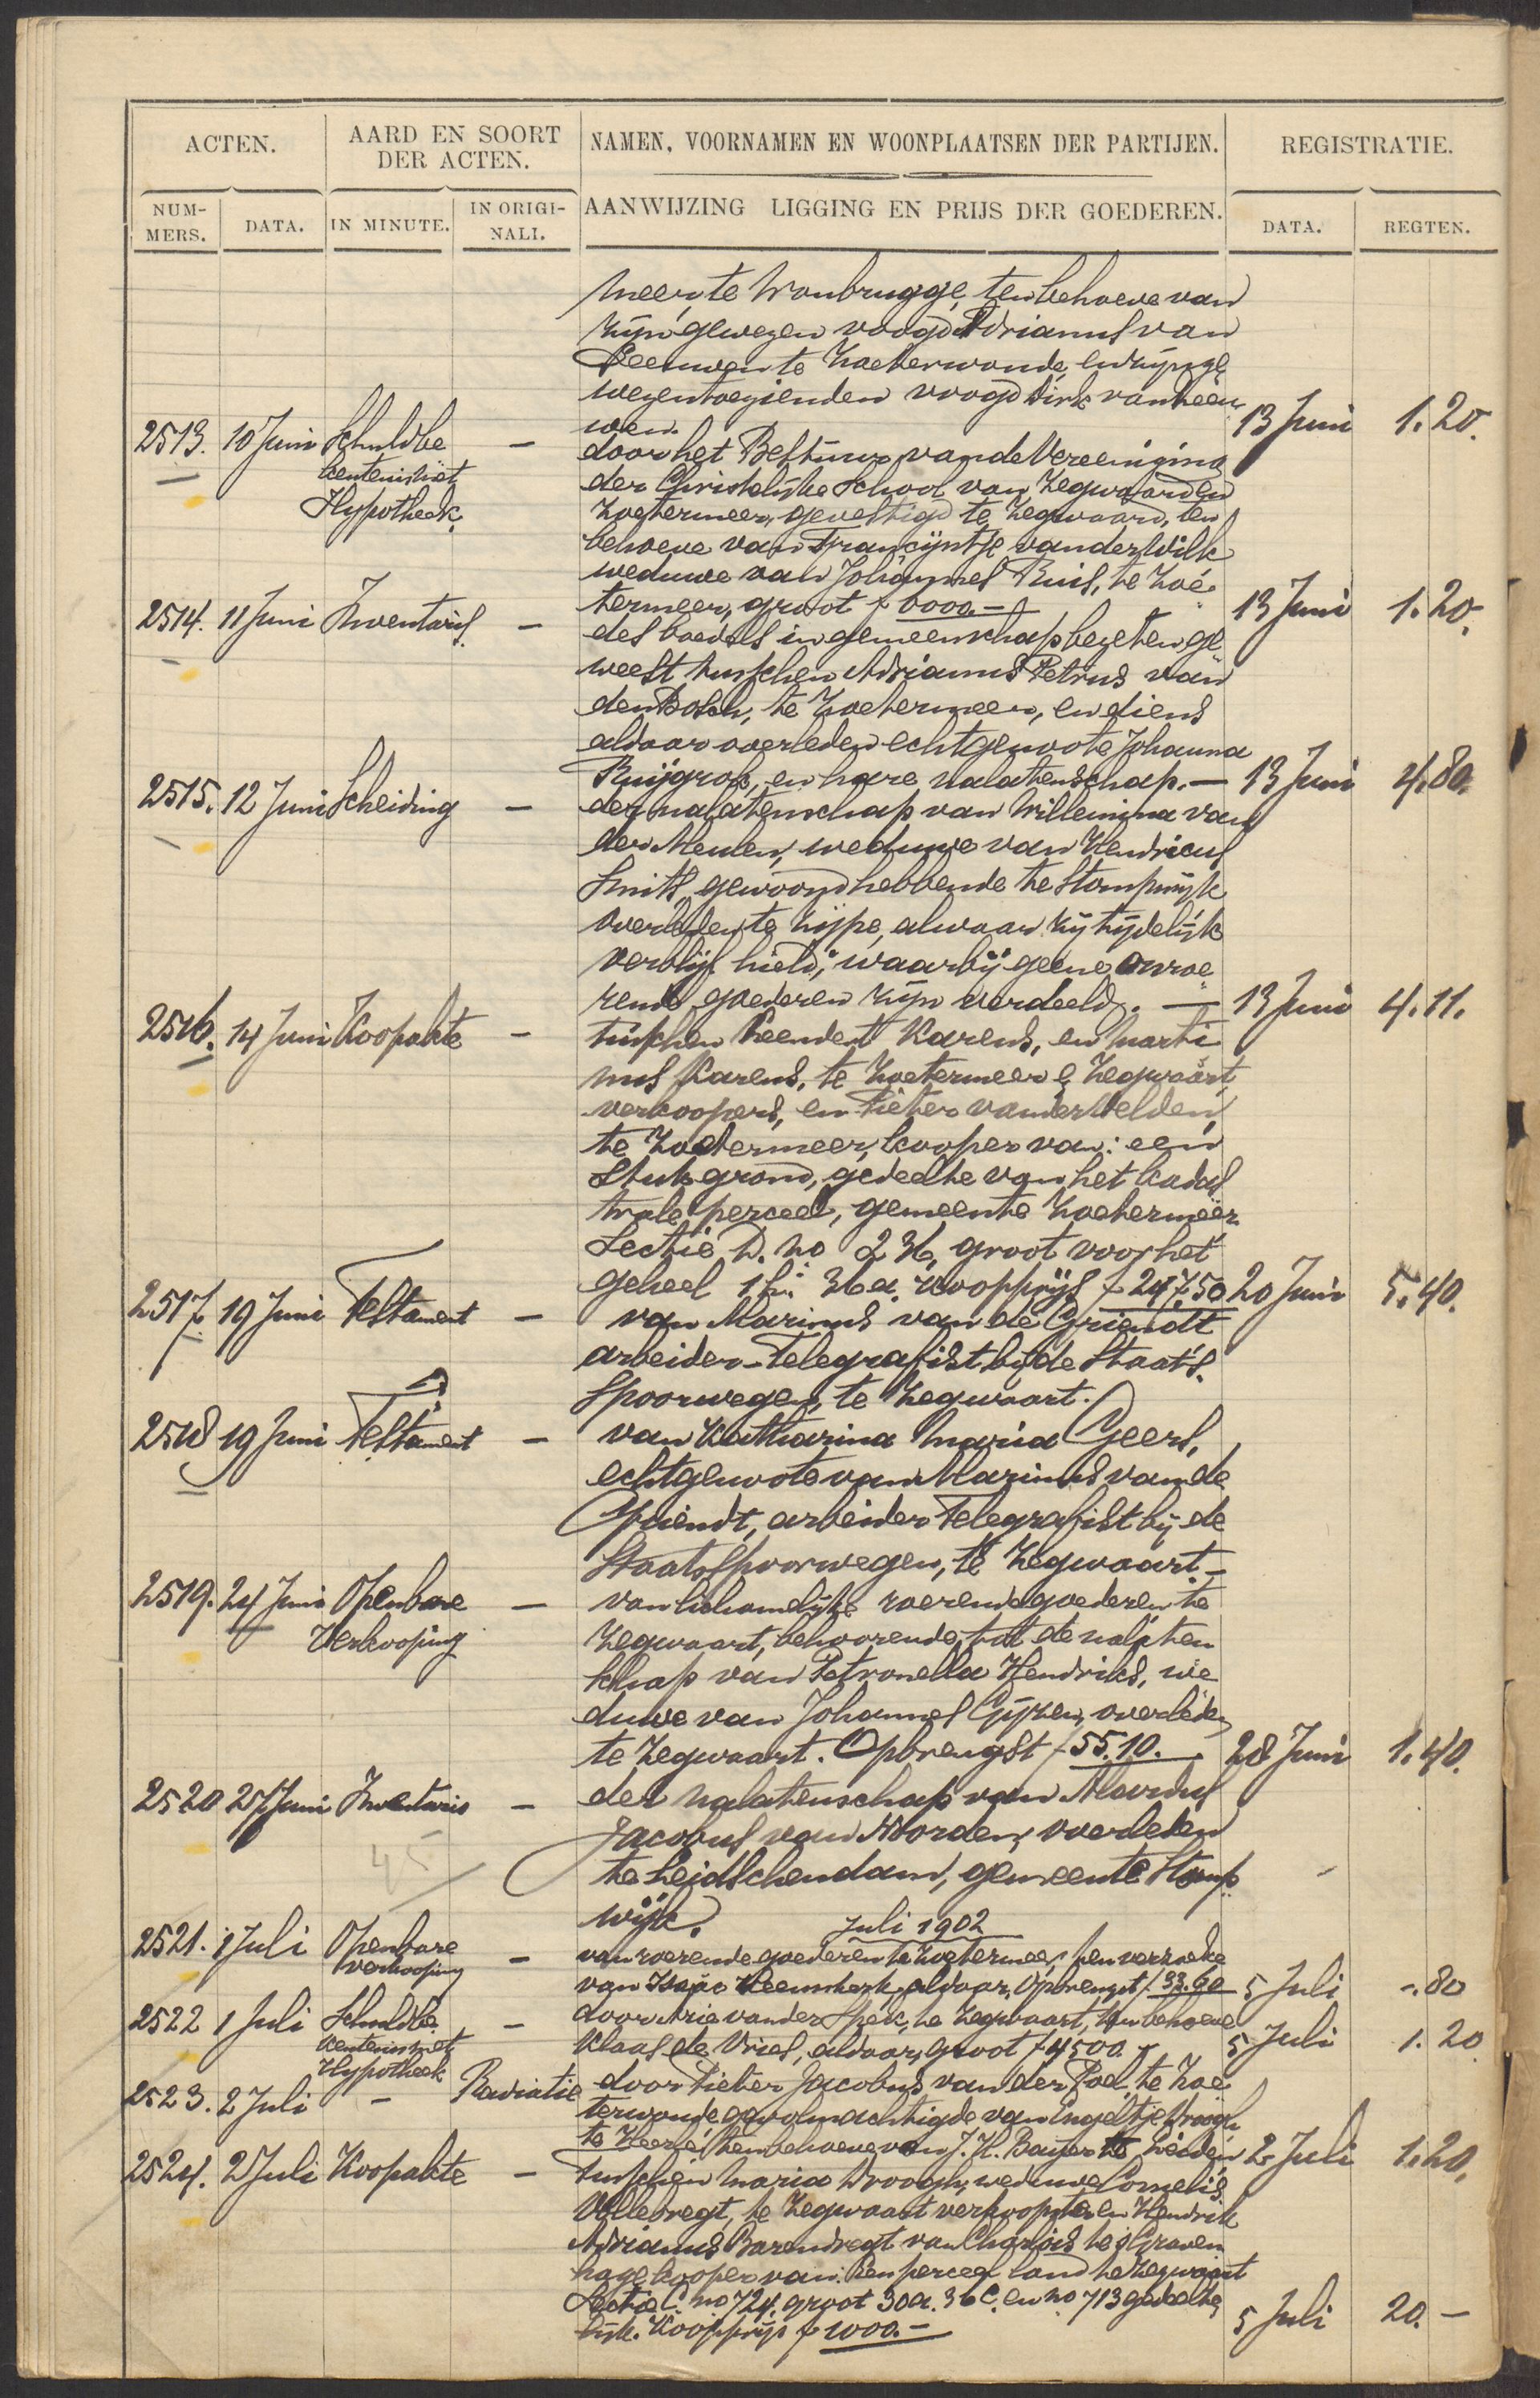 ACTEN.
AARD EN SOORT
DER ACTEN.
NAMEN, VOORNAMEN EN WOONPLAATSEN DER PARTIJEN.
REGISTRATIE.
NUM-
MERS.
DATA.
IN MINUTE.
IN ORIGI-
NALI.
AANWIJZING LIGGING EN PRIJS DER GOEDEREN.
DATA.
REGTEN.
meer, te Woubrugge, ten behoeve van
zijn gewezen voogd Adrianus van
Leeuwen te Zoeterwoude, en zijn ge
wezen toezienden voogd Dirk van Leeu
wen. 13 Juni 1.20.
2513. 10 Juni Schuldbe — door het Bestuur van de Vereeniging
kentenis met der Christelijke School van Zegwaard en
Hypotheek. Zoetermeer, gevestigd te Zegwaard, ten
behoeve van Francijntje van der Wilk
weduwe van Johannes Buis, te Zoe
termeer, groot f 6000.— 13 Juni 1.20.
2514. 11 Juni Inventaris. — des boedels in gemeenschap bezeten ge
weest tusschen Adrianus Petrus van
den Bosch, te Zoetermeer, en diens
aldaar overleden echtgenoote Johanna
Ruijgrok, en hare nalatenschap. — 13 Juni 4.80.
2515. 12 Juni Scheiding — der nalatenschap van Willemina van
der Meulen, weduwe van Hendricus
Smits, gewoond hebbende te Stompwijk
overleden te Zijpe, alwaar zij tijdelijk
verblijf hield, waarbij geene onroe
rende goederen zijn verdeeld. — 13 Juni 4.11.
2516. 14 Juni Koopakte — tusschen Leendert Karens, en Marti
nus Karens, te Zoetermeer & Zegwaart,
verkoopers, en Pieter van der Velden,
te Zoetermeer, kooper van: een
stuk grond, gedeelte van het kadas
trale perceel, gemeente Zoetermeer
Sectie D. no 236, groot voor het
geheel 1 h. 36 a. koopprijs f 247.50 20 Juni 5.40.
2517. 19 Juni Testament — van Marinus van de Griendt
arbeider-Telegrafist bij de Staats.
Spoorwegen, te Zegwaart.
2518 19 Juni Testament — van Katharina Maria Geers,
echtgenoote van Marinus van de
Griendt, arbeider Telegrafist bij de
Staatsspoorwegen, te Zegwaart.—
2519. 24 Juni Openbare — van lichamelijke roerende goederen te
Verkooping Zegwaart, behoorende tot de nalaten
schap van Petronella Hendriks, we
duwe van Johannes Gijzen, overleden
te Zegwaart. Opbrengst f 55.10. 28 Juni 1.40.
2520 27 Juni Inventaris — der nalatenschap van
45 Jacobus van Noorden, overleden
te Leidschendam, gemeente Stomp
wijk.
Juli 1902
2521. 1 Juli Openbare — van roerende goederen te Zoetermeer, ten verzoeke
verkooping van Isaac Heemskerk, aldaar, Opbrengst f 33.60 5 Juli -.80
2522 1 Juli Schuldbe — door Arie van der Spek, te Zegwaart, ten behoeve
kentenis met Klaas de Vries, aldaar, groot f 4500. 5 Juli 1.20
Hypotheek
2523. 2 Juli — Radiatie door Pieter Jacobus van der Poel te Zoe
terwoude gevolmachtigde van Engeltje Droogh
te Heerle, ten behoeve van J. H. Bauer te Leiden 2 Juli 1.20.
2524. 2 Juli Koopakte — Tusschen Maria Droogh, weduwe Cornelis
Vollebregt, te Zegwaart verkoopster en Hendrik
Adrianus Barendregt van Charlois te 's Graven
hage kooper van: Een perceel land te Zegwaart
Sectie C. no 724. groot 30 a. 36 c. en no 713 gedeelte
lijk. Koopprijs f 1000.— 5 Juli 20.—